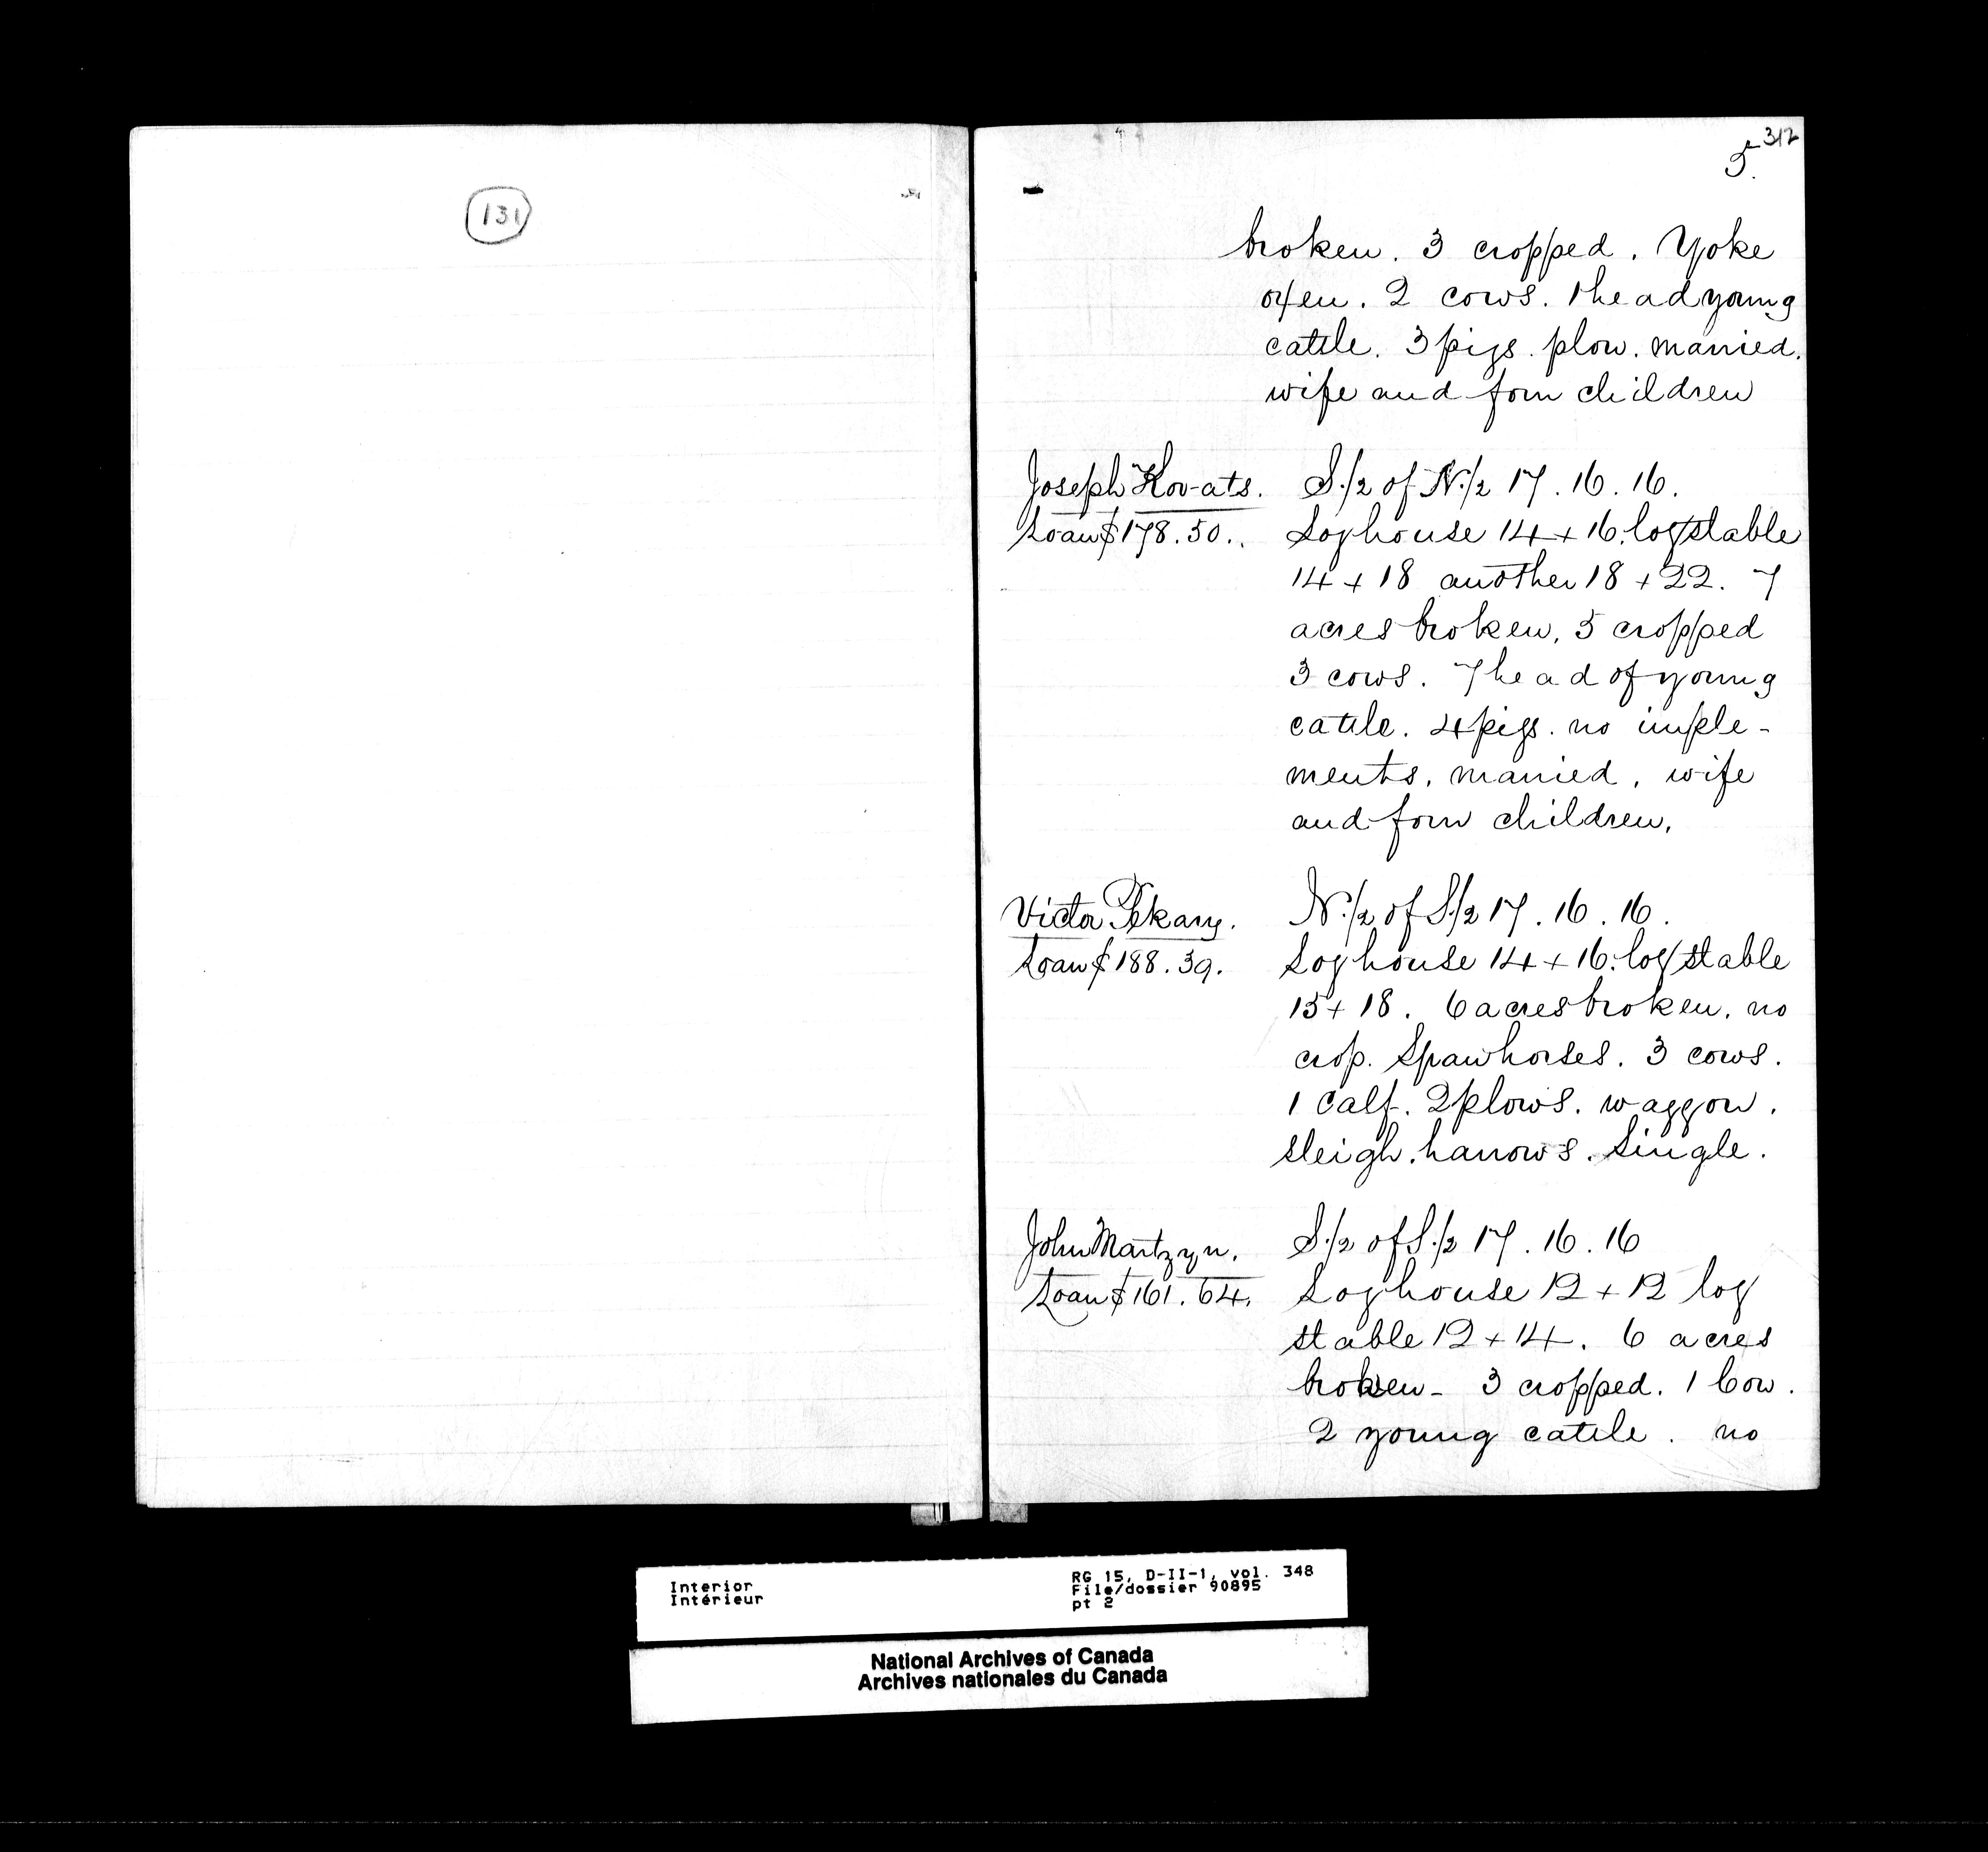 131
312
5.
broken. 3 cropped. Yoke
oxen. 2 cows. 1 head young
cattle. 3 pigs. plow. married.
wife and four children
Joseph Kovats. S.1/2 of N.1/2 17. 16. 16.
Loan $178.50.. Log house 14 + 16. log stable
14 + 18 another 18 + 22. 7
acres broken, 5 cropped
3 cows. 7 head of young
cattle. 4 pigs. no imple-
ments, married, wife
and four children.
Victor Pekary. N.1/2 of S.1/2 17. 16. 16.
Loan $188.39. Log house 14 + 16. log stable
15 + 18. 6 acres broken. no
crop. Span horses. 3 cows.
1 Calf. 2 plows. waggon.
sleigh. harrows. Single.
John Martzyn. S.1/2 of S.1/2 17. 16. 16
Loan $161.64. Log house 12 + 12 log
stable 12 + 14. 6 acres
broken - 3 cropped. 1 Cow.
2 young cattle. no
Interior
Intérieur
RG 15, D-II-1, vol. 348
File/dossier 90895
pt 2
National Archives of Canada
Archives nationales du Canada